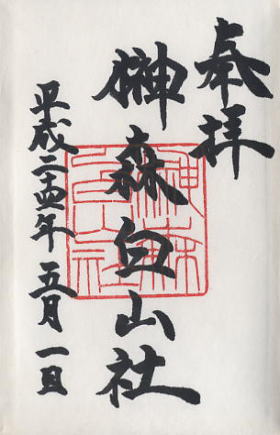 奉拝
榊森白山社
平成二十四年五月一日